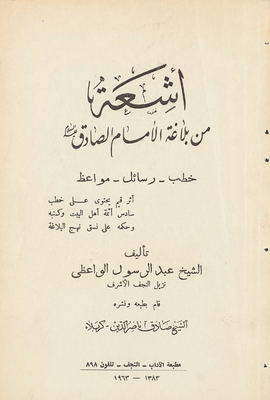 أشعة
من بلاغة الإمام الصادق
خطب - رسائل - مواعظ
أثر قيم يحتوي على خطب
سادس أئمة أهل البيت وكتبه
وحكمه على نسق نهج البلاغة
تأليف
الشيخ عبد الرسول الواعظي
نزيل النجف الأشرف
قام بطبعه ونشره
الشيخ صادق ناصر الدين - كربلاء
مطبعة الآداب - النجف - تلفون ٨٩٨
١٣٨٣ — ١٩٦٣